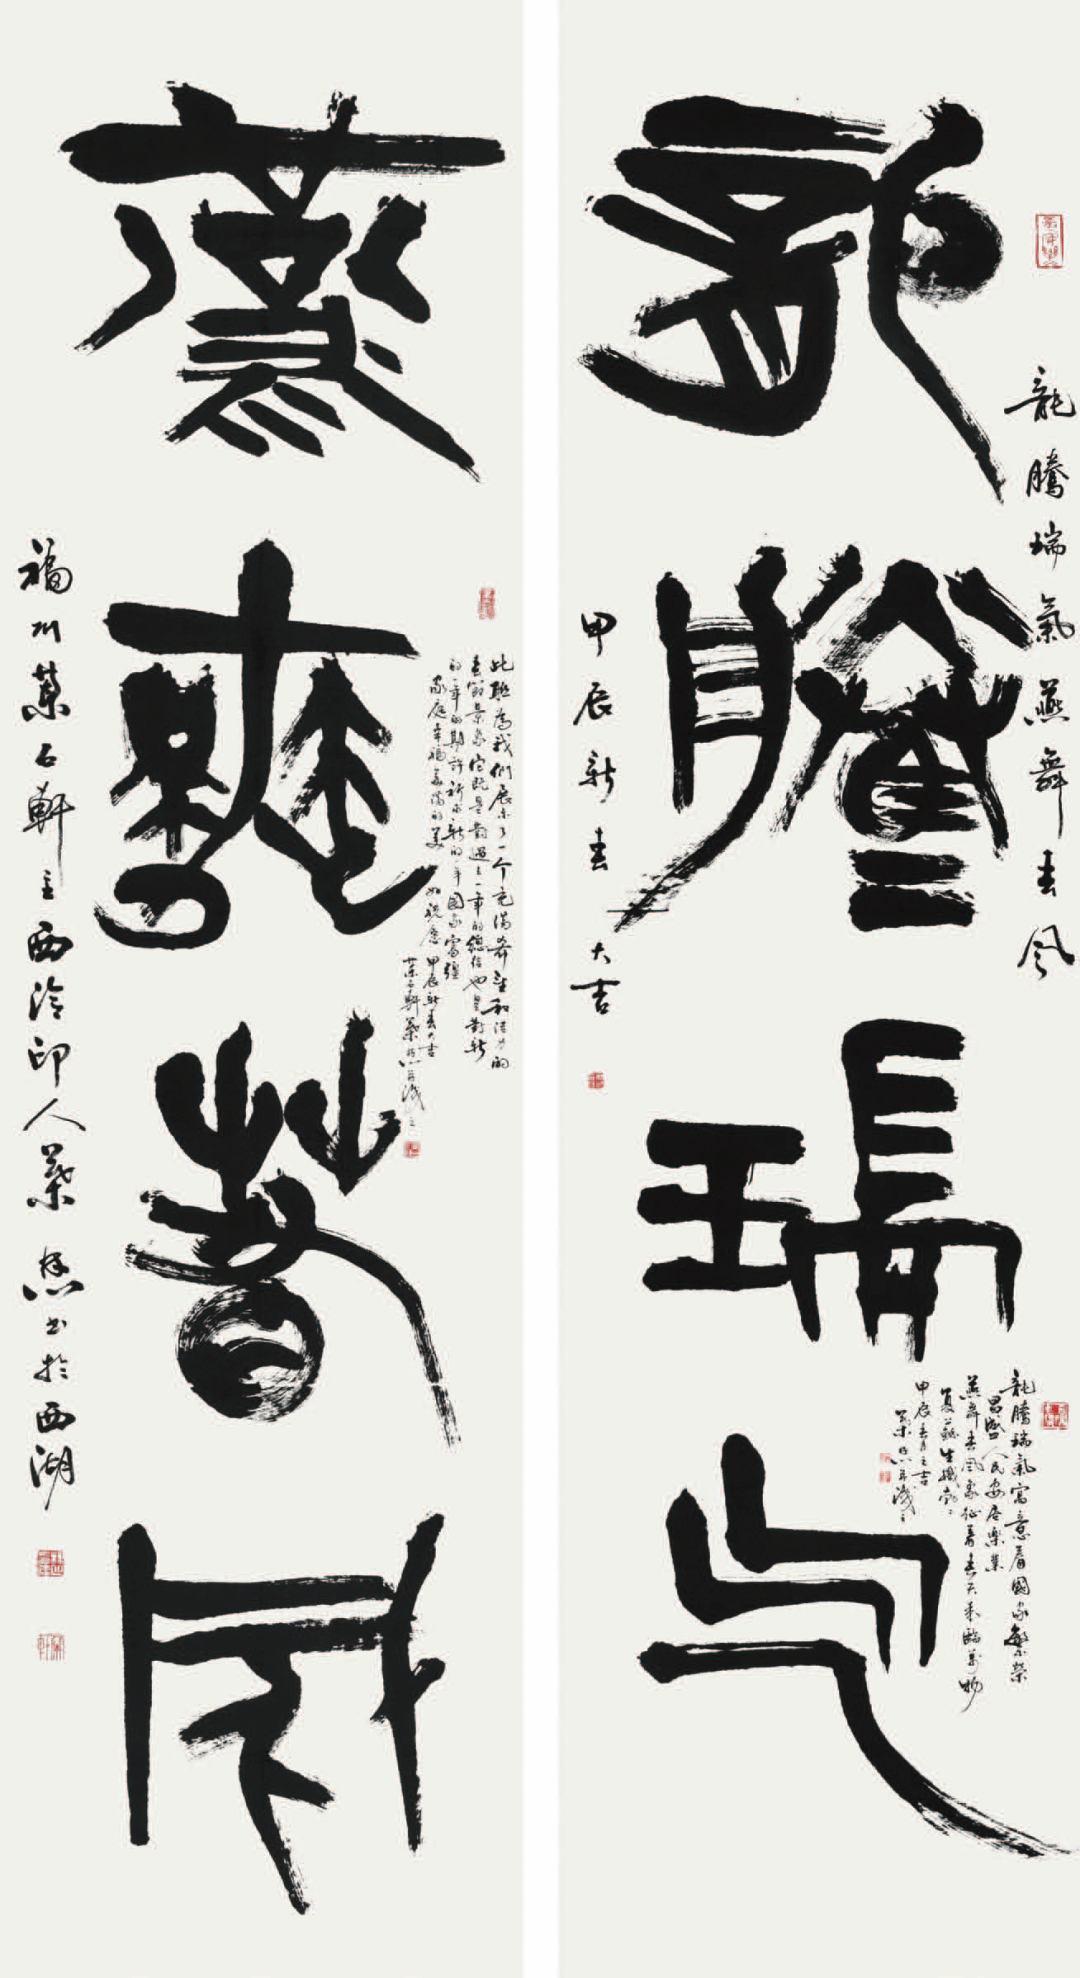 龍騰瑞氣
龍騰瑞氣燕舞春风
甲辰新春大吉
龍騰瑞氣寓意着國家繁榮
昌盛人民安居樂業
燕舞春风象征着春天来临万物
复蘇生機勃勃
甲辰春月之吉
燕舞春风
此联為我們展示了一个充满希望和活力的
春节景象它既是對過去一年的總结也是對新
的一年的期許祈求新的一年國家富强
家庭幸福美满的美好祝愿甲辰新春大吉
福州葉石軒主西泠印人葉書於西湖